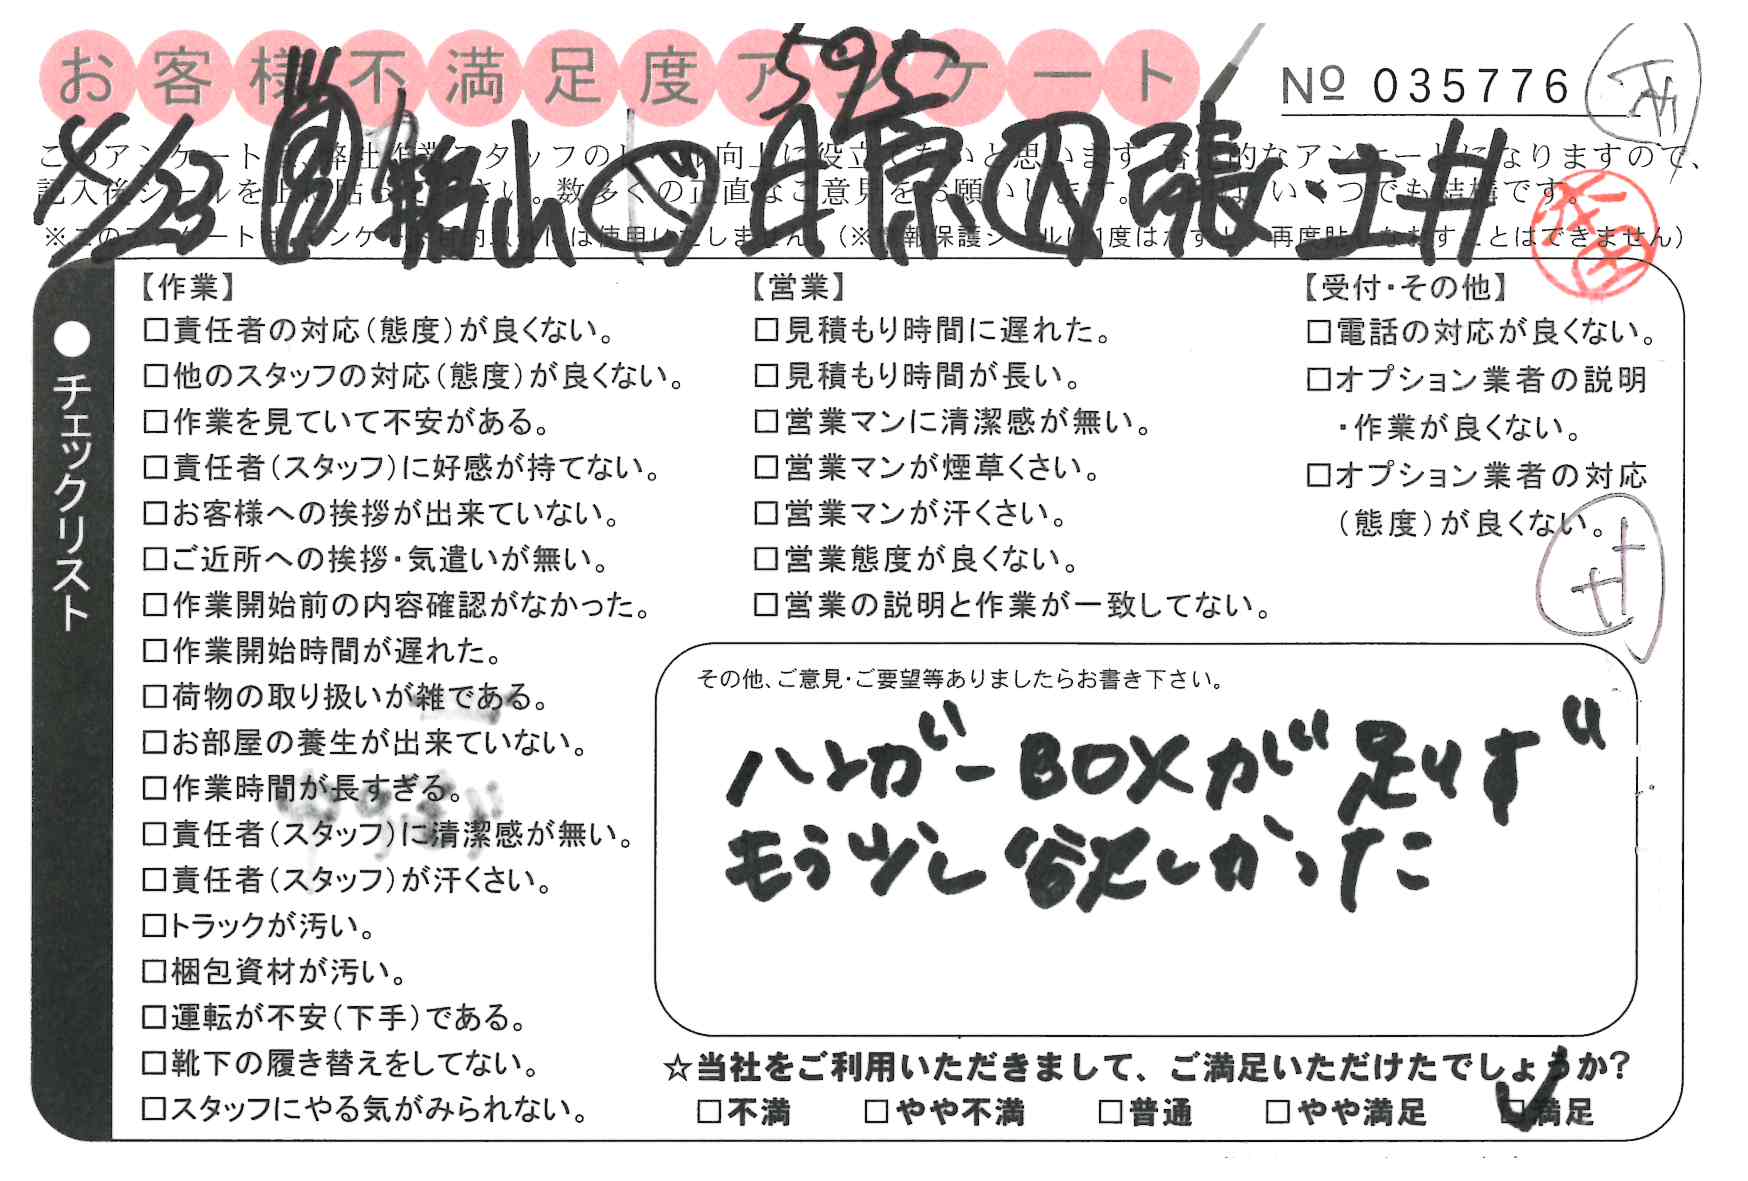 お客様不満足度アンケート
595
№ 035776
このアンケートは、弊社作業スタッフのレベル向上に役立てたいと思います。否定的なアンケートになりますので、
記入後シールを上に貼ってください。数多くの正直なご意見をお願いします。
※このアンケートは、アンケート目的以外には使用いたしません。(※情報保護シールは1度はがすと、再度貼りなおすことはできません)
●チェックリスト
【作業】
□責任者の対応(態度)が良くない。
□他のスタッフの対応(態度)が良くない。
□作業を見ていて不安がある。
□責任者(スタッフ)に好感が持てない。
□お客様への挨拶が出来ていない。
□ご近所への挨拶・気遣いが無い。
□作業開始前の内容確認がなかった。
□作業開始時間が遅れた。
□荷物の取り扱いが雑である。
□お部屋の養生が出来ていない。
□作業時間が長すぎる。
□責任者(スタッフ)に清潔感が無い。
□責任者(スタッフ)が汗くさい。
□トラックが汚い。
□梱包資材が汚い。
□運転が不安(下手)である。
□靴下の履き替えをしてない。
□スタッフにやる気がみられない。
【営業】
□見積もり時間に遅れた。
□見積もり時間が長い。
□営業マンに清潔感が無い。
□営業マンが煙草くさい。
□営業マンが汗くさい。
□営業態度が良くない。
□営業の説明と作業が一致してない。
【受付・その他】
□電話の対応が良くない。
□オプション業者の説明
・作業が良くない。
□オプション業者の対応
(態度)が良くない。
その他、ご意見・ご要望等ありましたらお書き下さい。
ハンガーBOXが足りず
もう少し欲しかった
☆当社をご利用いただきまして、ご満足いただけたでしょうか?
□不満 □やや不満 □普通 □やや満足 ☑満足